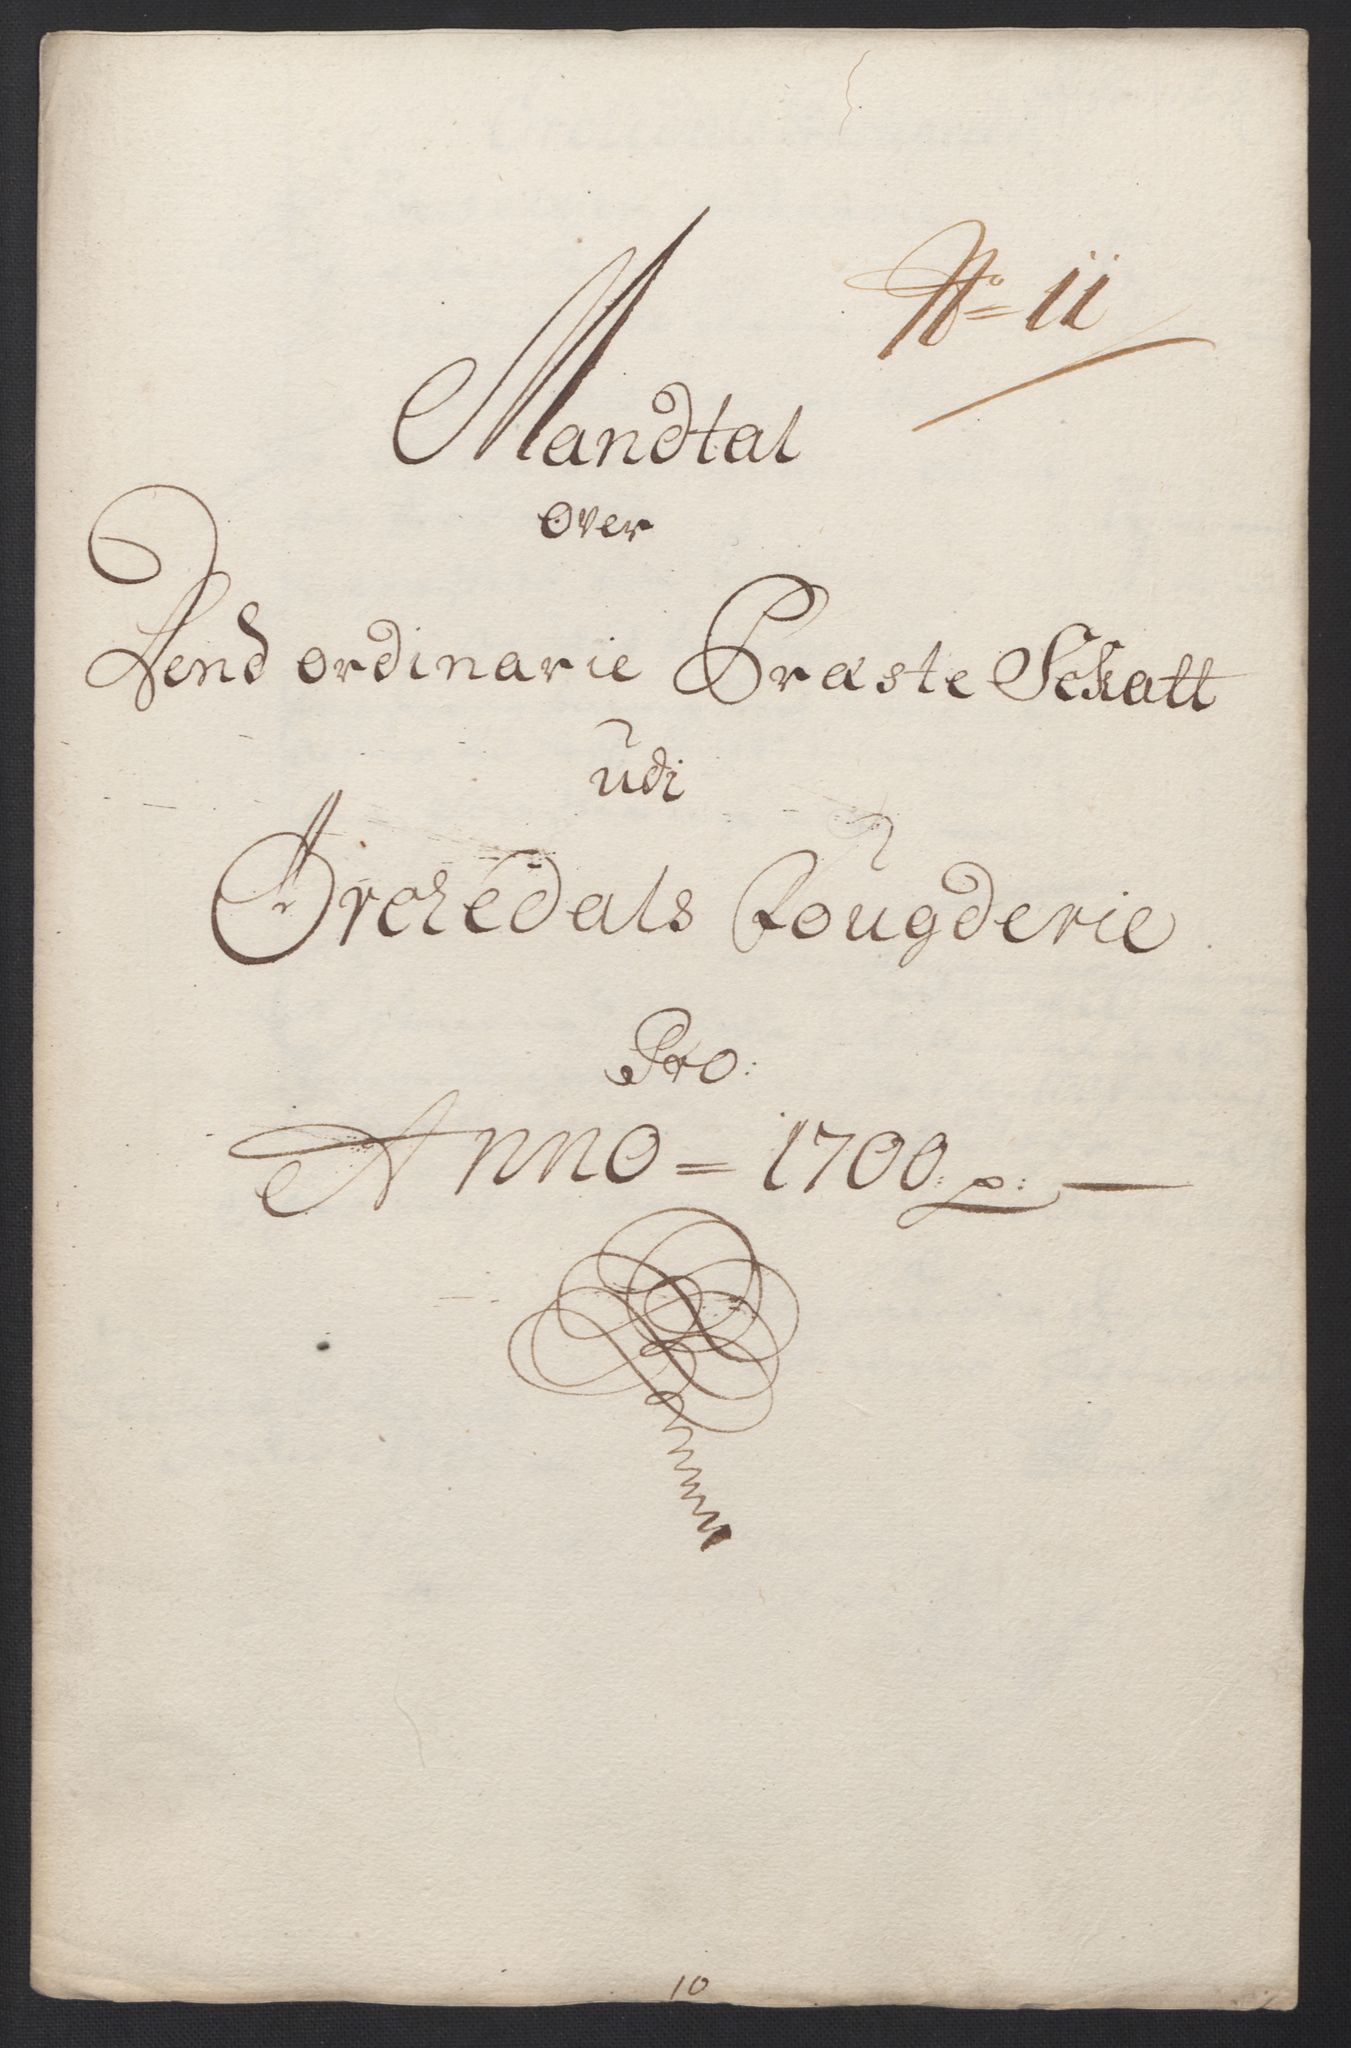 No= 11
Mandtal
over
Dend ordinarie Præste Schatt
udi
Orchedals Fougderie
Pro:
Anno = 1700
10